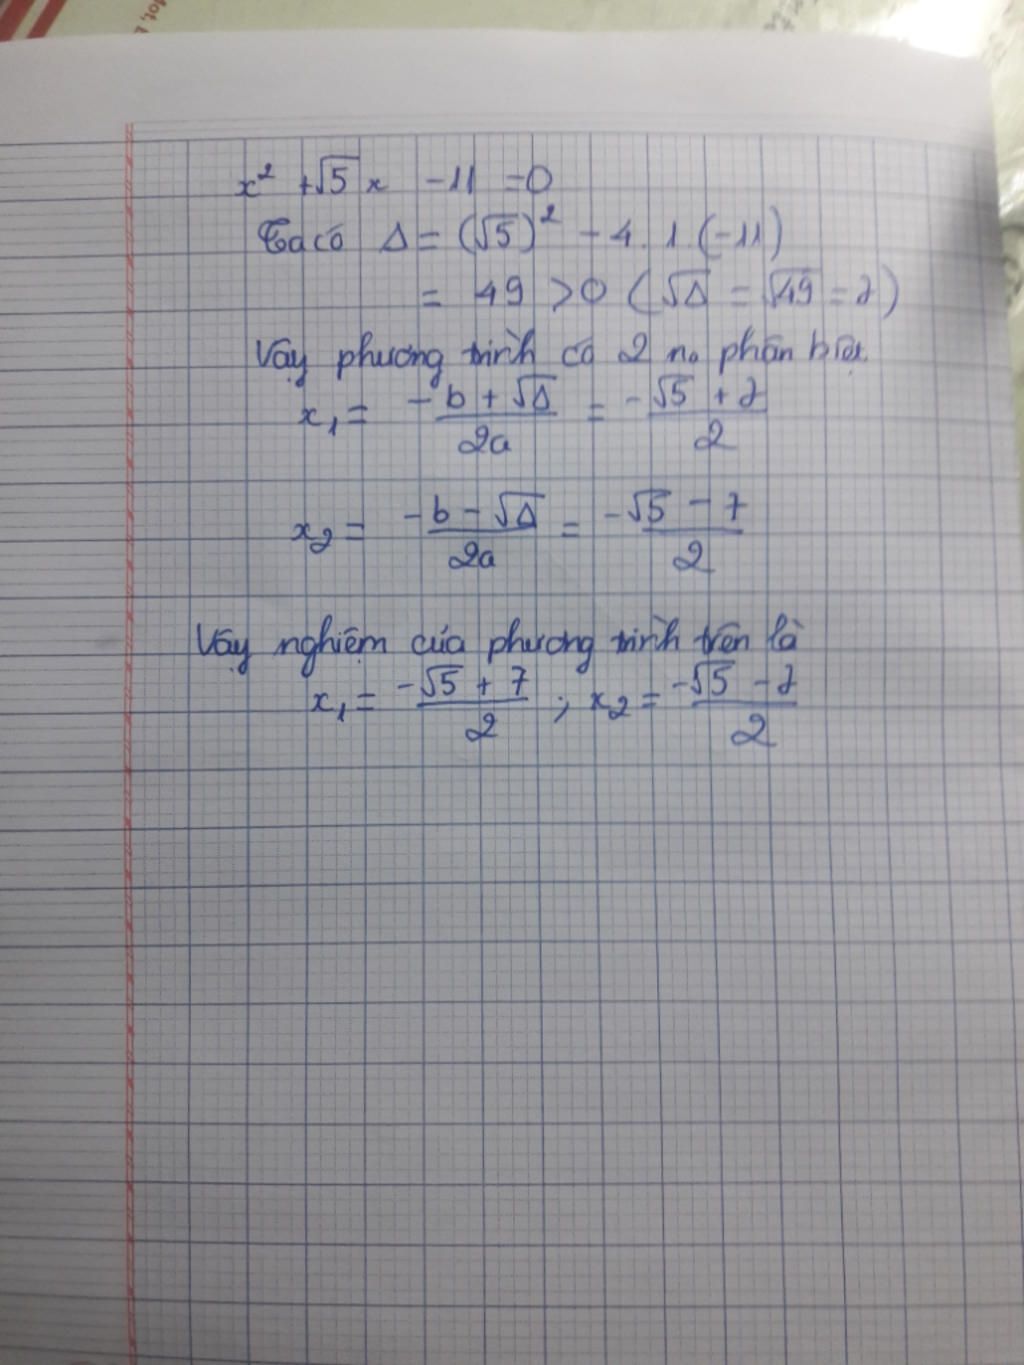 x² + √5 x - 11 = 0
Ta có Δ = (√5)² - 4 . 1 . (-11)
= 49 > 0 (√Δ = √49 = 7)
Vậy phương trình có 2 no phân biệt.
x₁ = (-b + √Δ)/2a = (-√5 + 7)/2
x₂ = (-b - √Δ)/2a = (-√5 - 7)/2
Vậy nghiệm của phương trình trên là
x₁ = (-√5 + 7)/2 ; x₂ = (-√5 - 7)/2